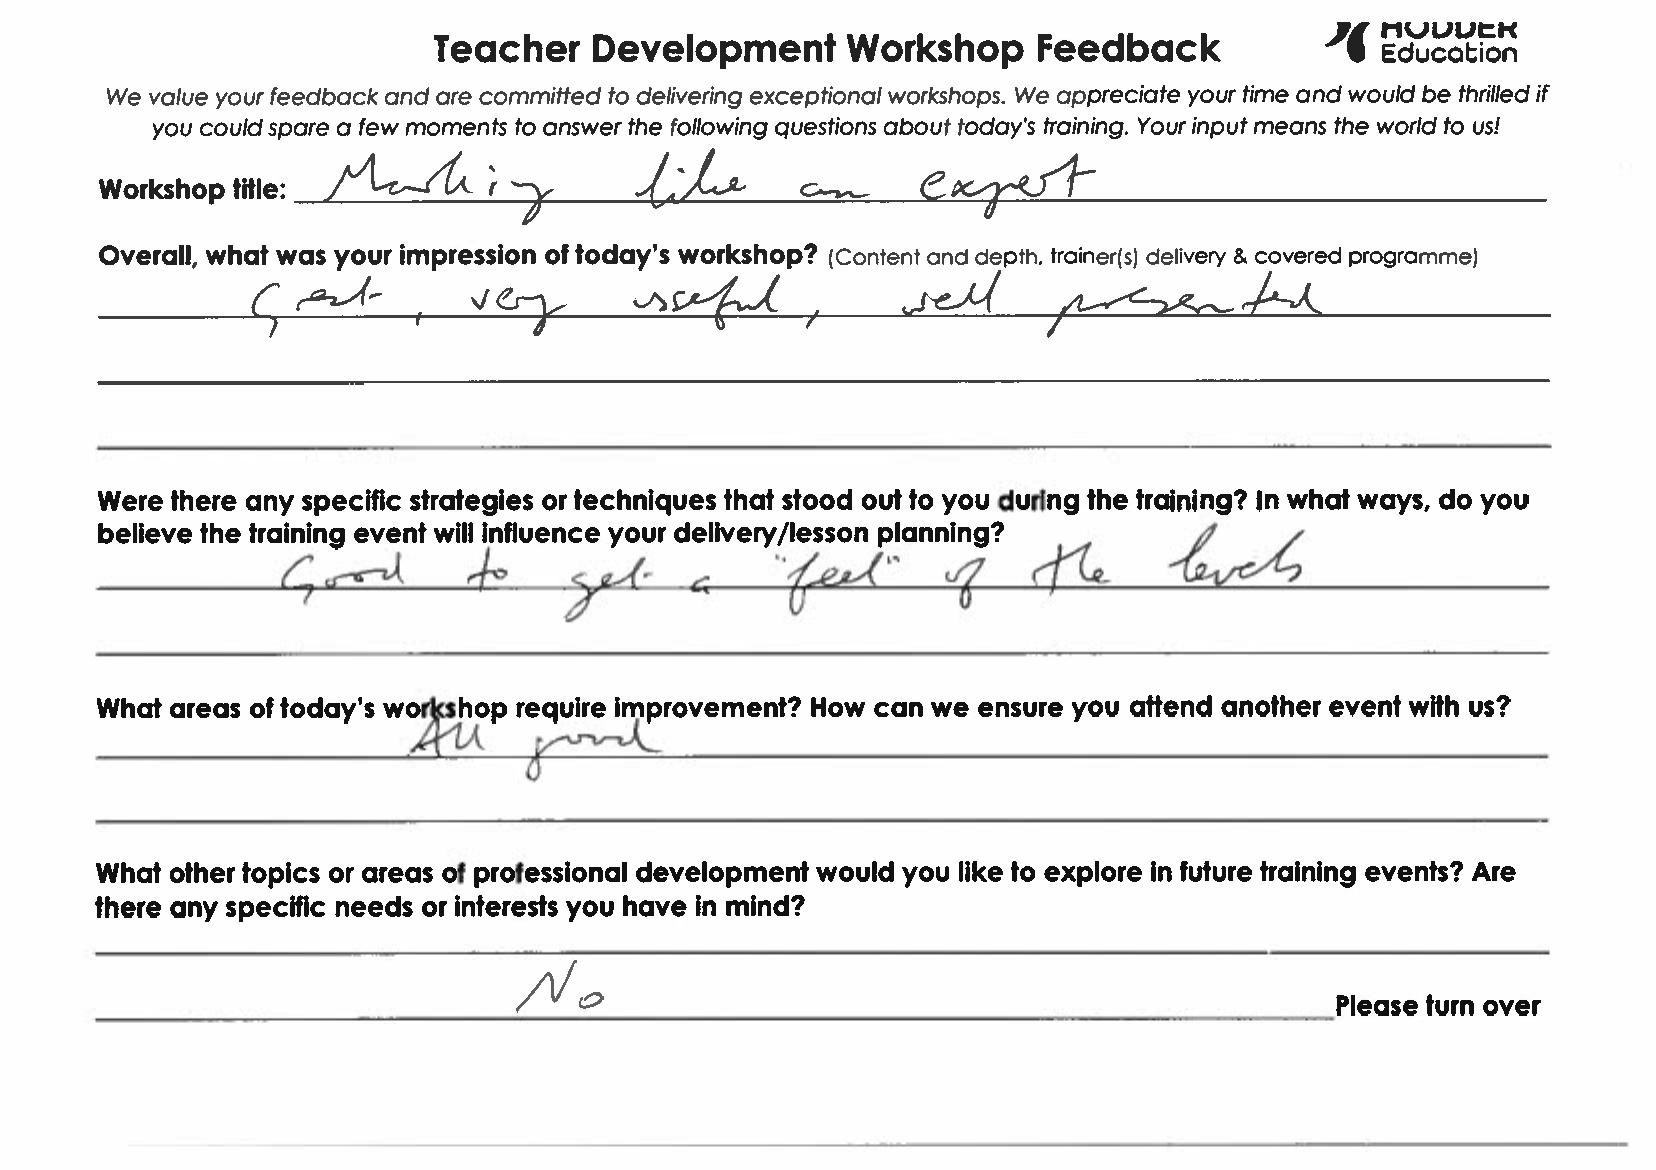 Teacher Development Workshop Feedback
HODDER
Education
We value your feedback and are committed to delivering exceptional workshops. We appreciate your time and would be thrilled if
you could spare a few moments to answer the following questions about today's training. Your input means the world to us!
Workshop title: Marking like an expert
Overall, what was your impression of today's workshop? (Content and depth, trainer(s) delivery & covered programme)
Great, very useful, well presented
Were there any specific strategies or techniques that stood out to you during the training? In what ways, do you
believe the training event will influence your delivery/lesson planning?
Good to get a "feel" of the levels
What areas of today's workshop require improvement? How can we ensure you attend another event with us?
All good
What other topics or areas of professional development would you like to explore in future training events? Are
there any specific needs or interests you have in mind?
No
Please turn over